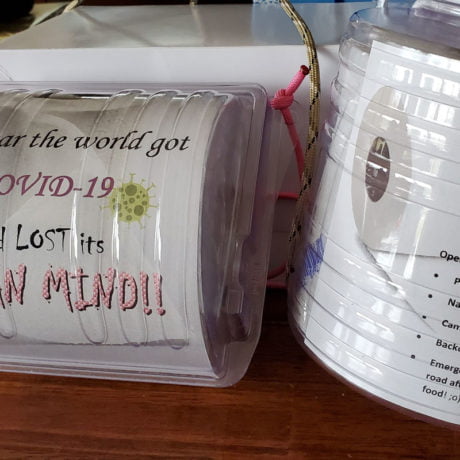 ar the world got
OVID-19
LOST its
MIND!!
Ope
Na
Cam
Backu
Emerg
road af
food! ;o)